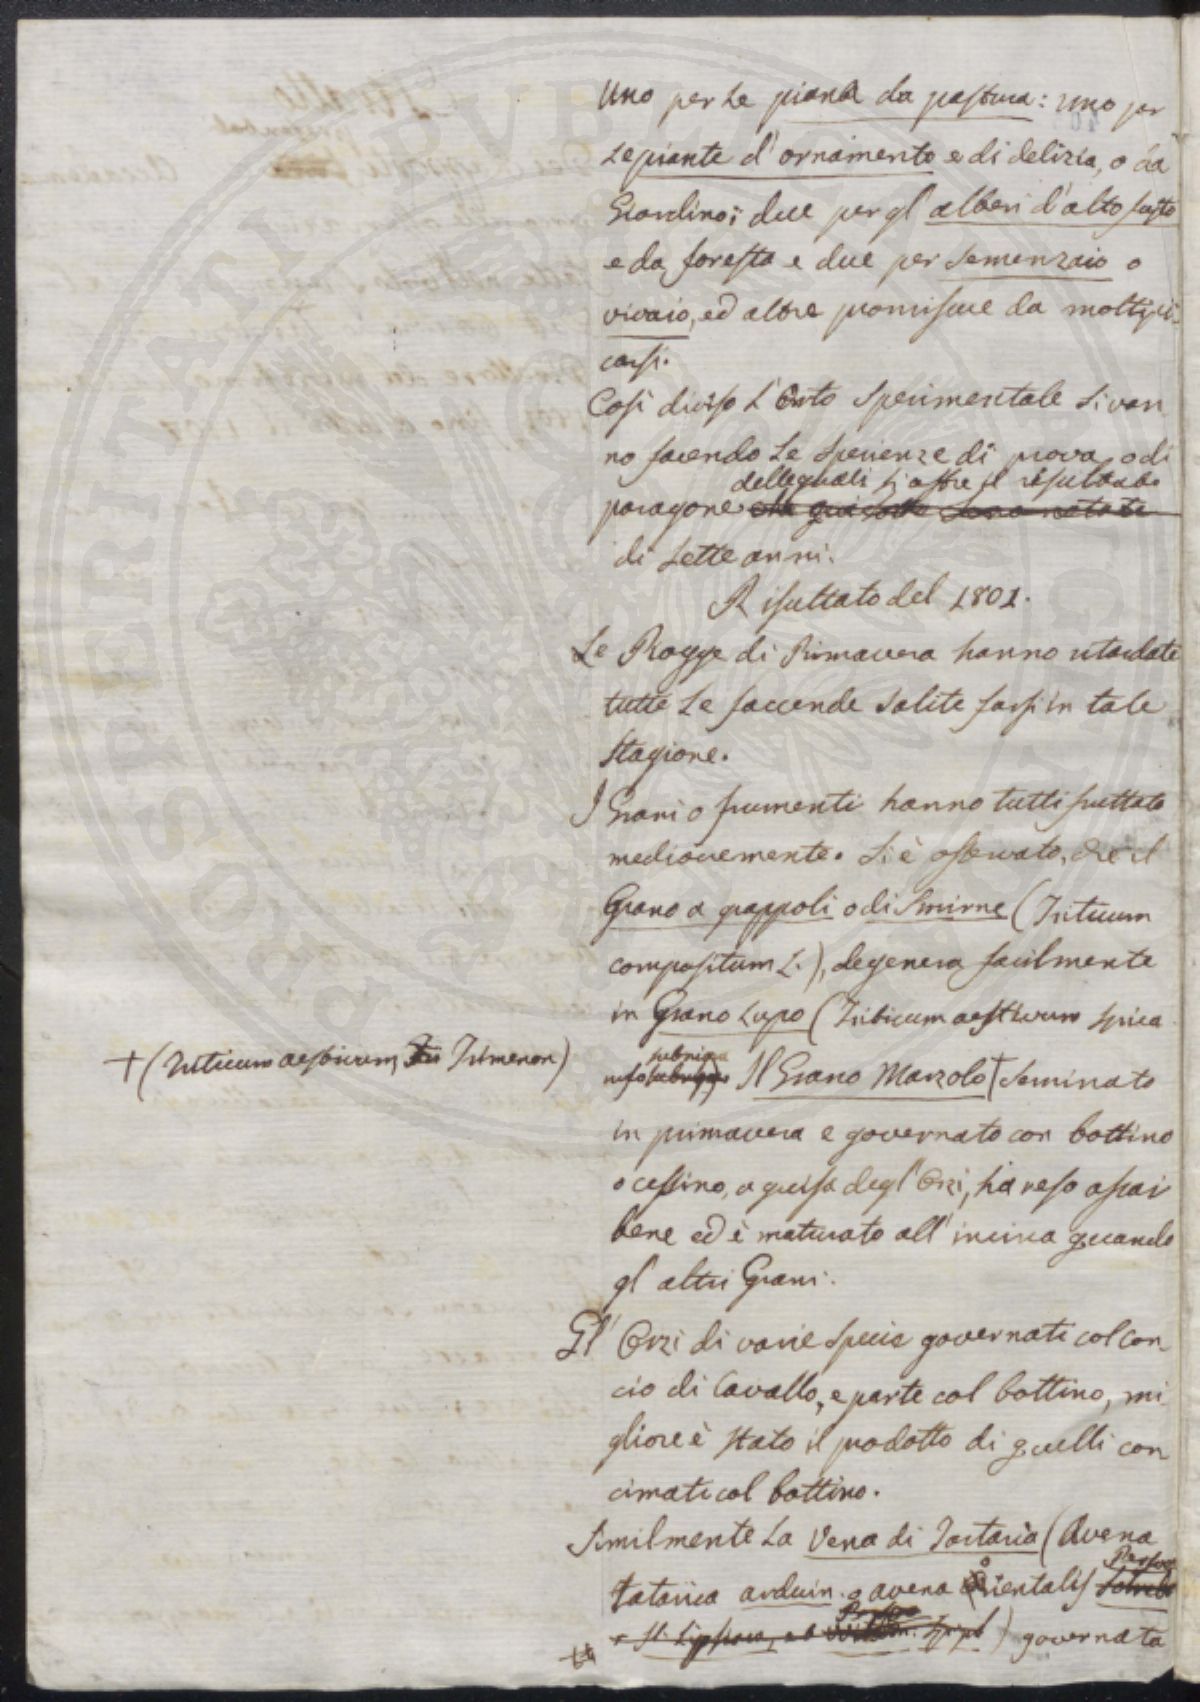 Uno per le piante da pastura: uno per
le piante d'ornamento e di delizia, o da
Giardino; due per gl'alberi d'alto fusto
e da foresta e due per semenzaio o
vivaio, ed altre promiscue da moltipli-
carsi.
Così diviso l'Orto sperimentale si van
no facendo le sperienze di prova, o di
delle quali si offre il resultato
paragone che qui sotto sono notate
di sette anni.
Risultato del 1801.
Le Piogge di Primavera hanno ritardate
tutte le faccende solite farsi in tale
stagione.
I Grani o frumenti hanno tutti fruttato
mediocremente. Si è osservato, che il
Grano a grappoli o di Smirne (Triticum
compositum L.), degenera facilmente
in Grano Lupo (Triticum aestivum spica
rufo Il Grano Marzolo + seminato
+ (Triticum aestivum, Trimenon)
in primavera e governato con bottino
o cessino, a guisa degl'Orzi, ha reso assai
bene ed è maturato all'incirca quando
gl'altri Grani.
Gl'Orzi di varie specie governati col con
cio di Cavallo, e parte col bottino, mi
gliore è stato il prodotto di quelli con
cimati col bottino.
Similmente la Vena di Tartaria (Avena
tatarica arduin. o avena orientalis
) governata